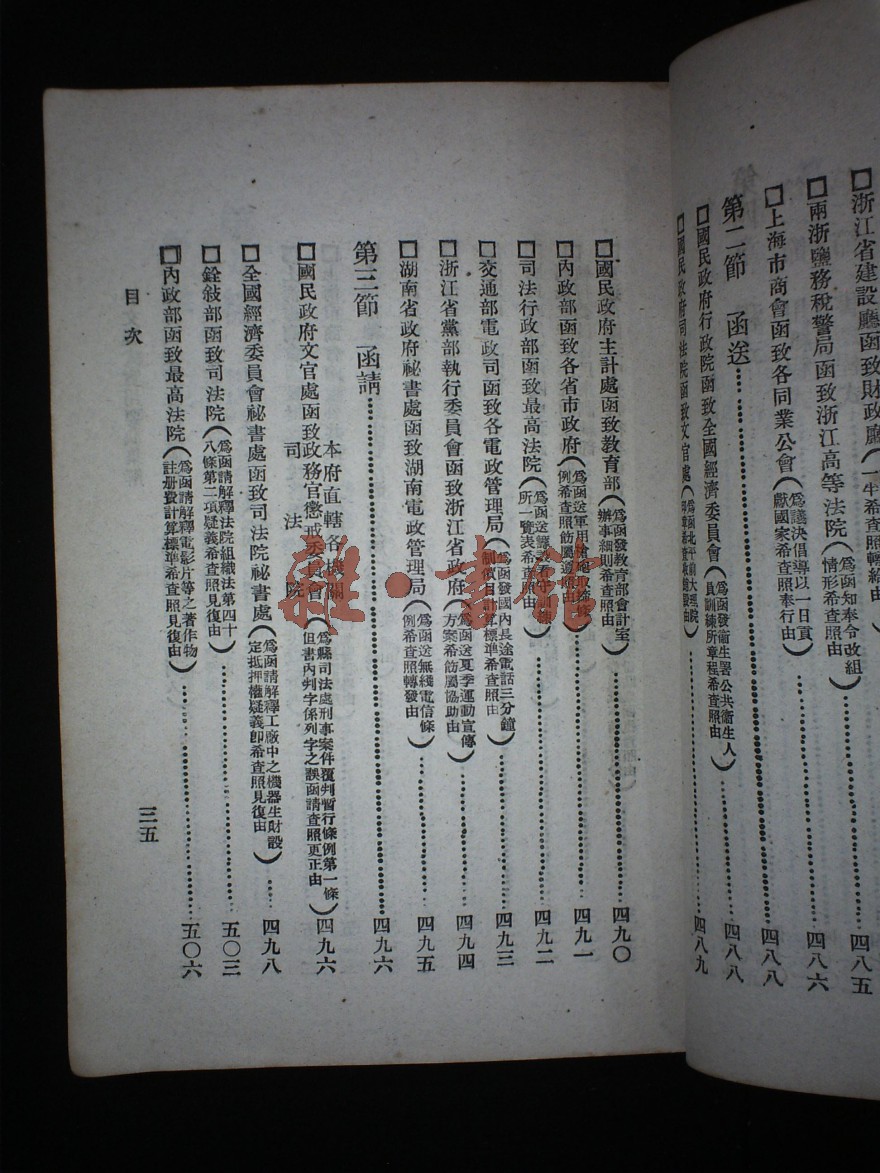 □浙江省建設廳函致財政廳(
四八五
□兩浙鹽務稅警局函致浙江高等法院(爲函知奉令改組情形希查照由)……四八六
□上海市商會函致各同業公會(爲議決倡導以一日貢獻國家希查照奉行由)……四八八
第二節 函送……四八八
□國民政府行政院函致全國經濟委員會(爲函發衞生署公共衞生人員訓練所章程希查照由)
□國民政府司法院函致文官處(爲函北平前大理院
四八九
□國民政府主計處函致教育部(爲函發教育部會計室辦事細則希查照由)……四九〇
□內政部函致各省市政府(爲函送軍用
例希查照飭屬遵照由)……四九一
□司法行政部函致最高法院(爲函送
所一覽表希查照由)……四九二
□交通部電政司函致各電政管理局(爲函發國內長途電話三分鐘制價目計算標準希查照由)……四九三
□浙江省黨部執行委員會函致浙江省政府(爲函送夏季運動宣傳方案希飭屬協助由)……四九四
□湖南省政府祕書處函致湖南電政管理局(爲函送無綫電信條例希查照轉發由)……四九五
第三節 函請……四九六
□國民政府文官處函致本府直轄各機關司法院政務官懲戒委員會(爲縣司法處刑事案件覆判暫行條例第一條但書內判字係列字之誤函請查照更正由)四九六
□全國經濟委員會祕書處函致司法院祕書處(爲函請解釋工廠中之機器生財設定抵押權疑義卽希查照見復由)……四九八
□銓敍部函致司法院(爲函請解釋法院組織法第四十八條第二項疑義希查照見復由)……五〇三
□內政部函致最高法院(爲函請解釋電影片等之著作物註册費計算標準希查照見復由)……五〇六
目次
三五
雜·書館